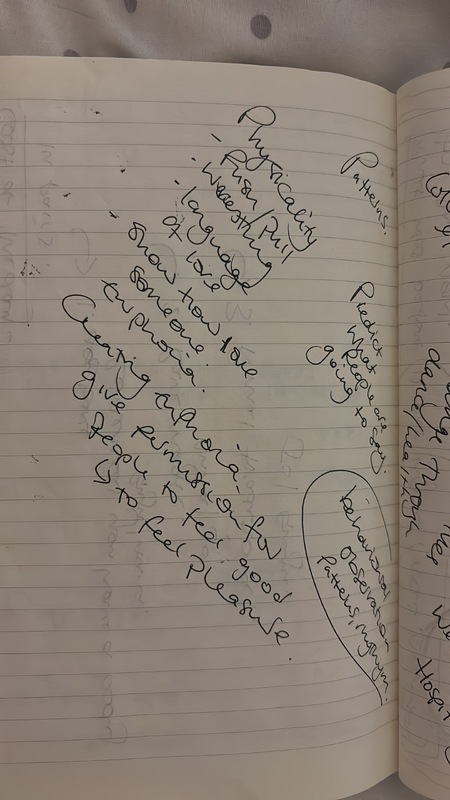 Patterns.
Predict
what
people are
going to say.
behavioural
observation
Patterns,
Physicality
- Push/Pull
- Wrestling
- language
of love
- Show how love
someone.
Euphoria.
Creating euphoria.
give permission for
People to feel good
↳ to feel Pleasure
dance/
Through
we
Hospit